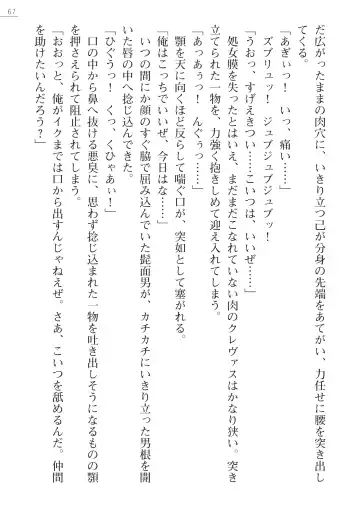 67
だ広がったままの肉穴に、いきり立つ己が分身の先端をあてがい、力任せに腰を突き出し
てくる。
「あぎぃっ！　いっ、痛い……」
ズブリュッ！　ジュブジュブジュブッ！
「うおっ、すげえきつい……こいつは、いいぜ……」
処女膜を失ったとはいえ、まだまだこなれていない肉のクレヴァスはかなり狭い。突き
立てられた一物を、力強く抱きしめて迎え入れてしまう。
「あっあぁっ！　んぐぁっ……」
顎を天に向くほど反らして喘ぐ口が、突如として塞がれる。
「俺はこっちでいいぜ、今日はな……」
いつの間にか顔のすぐ脇で屈み込んでいた髭面男が、カチカチにいきり立った男根を開
いた唇の中へ捻じ込んできた。
「ひぐうっ！　くっ、くひゃあぃ！」
口の中から鼻へ抜ける悪臭に、思わず捻じ込まれた一物を吐き出しそうになるものの顎
を押さえられて阻止されてしまう。
「おおっと、俺がイクまでは口から出すんじゃねえぜ。さあ、こいつを舐めるんだ。仲間
を助けたいんだろう？」